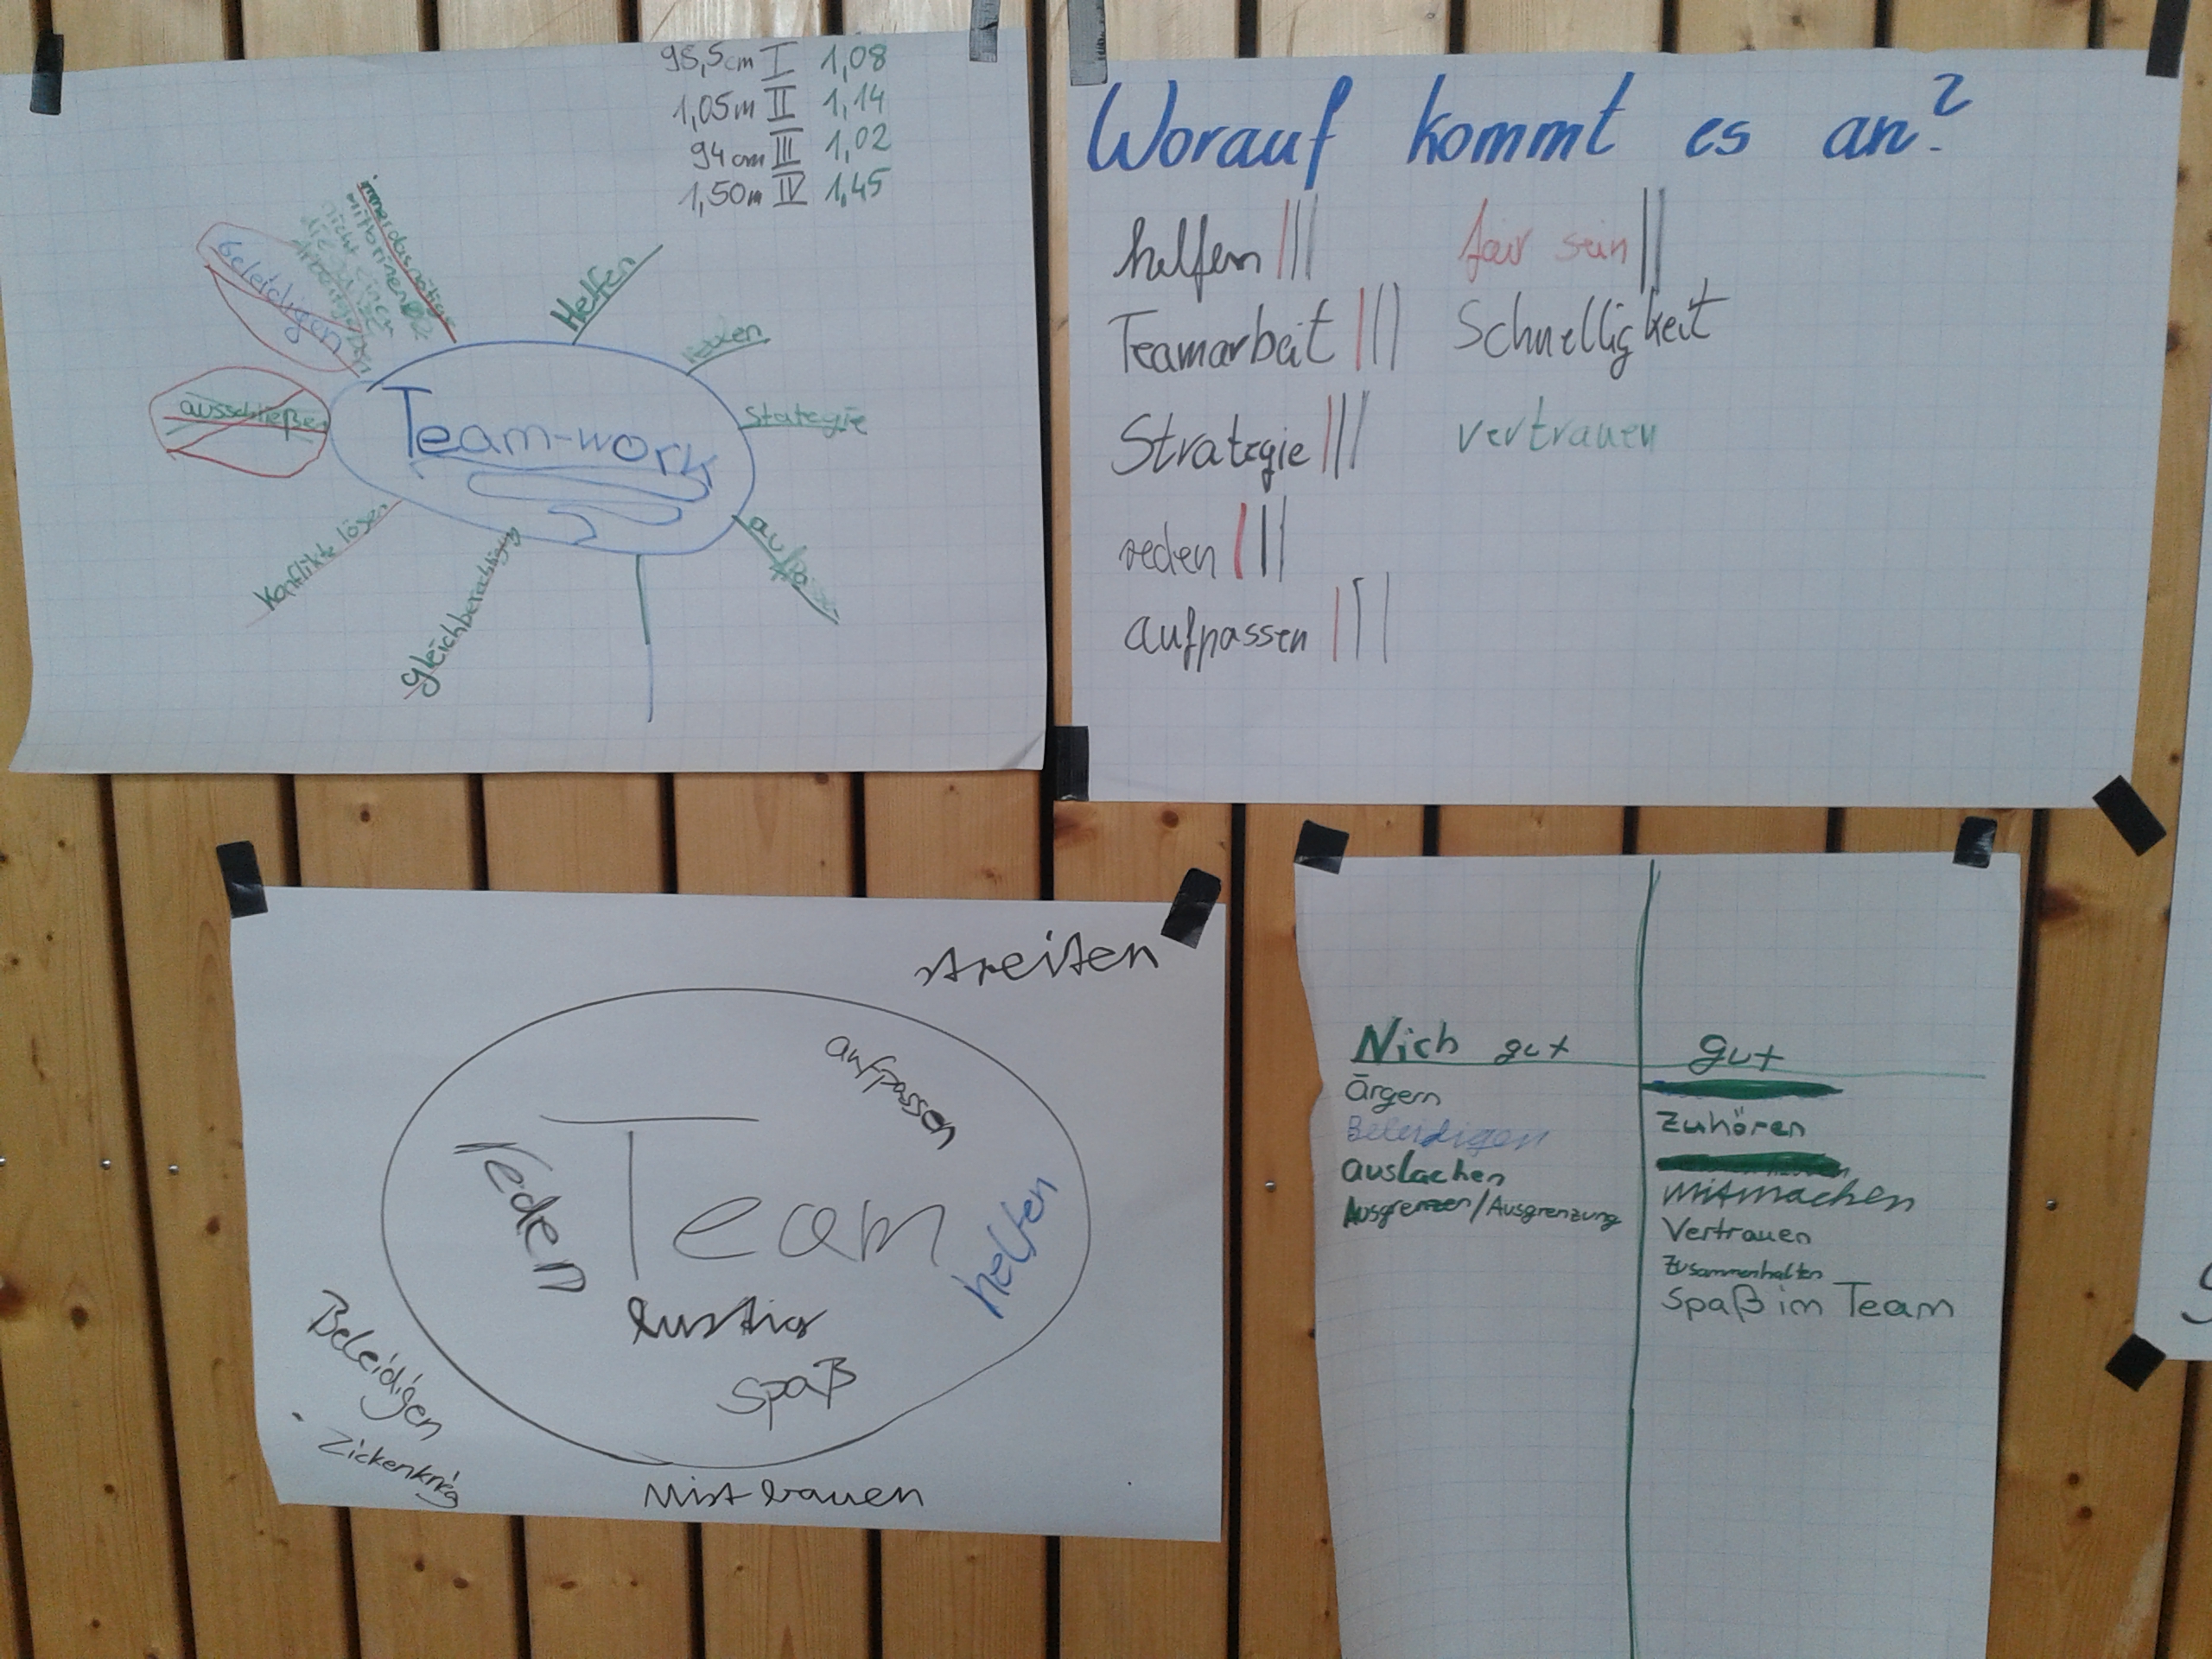 98,5cm I 1,08
1,05m II 1,14
94cm III 1,02
1,50m IV 1,45
beleidigen
Helfen
reden
Stategie
ausschließen
Team-work
aufpassen
Konflikte lösen
gleichberechtigt
Worauf kommt es an?
helfen ||| fair sein ||
Teamarbeit ||| Schnelligkeit
Strategie ||| vertrauen
reden |||
aufpassen |||
streiten
aufpassen
reden
Team
helfen
lustig
Spaß
Beleidigen
Zickenkrieg
Misstrauen
Nich gut gut
ärgern
Beleidigen Zuhören
auslachen
Ausgrenzen/Ausgrenzung Mitmachen
Vertrauen
Zusammenhalten
Spaß im Team